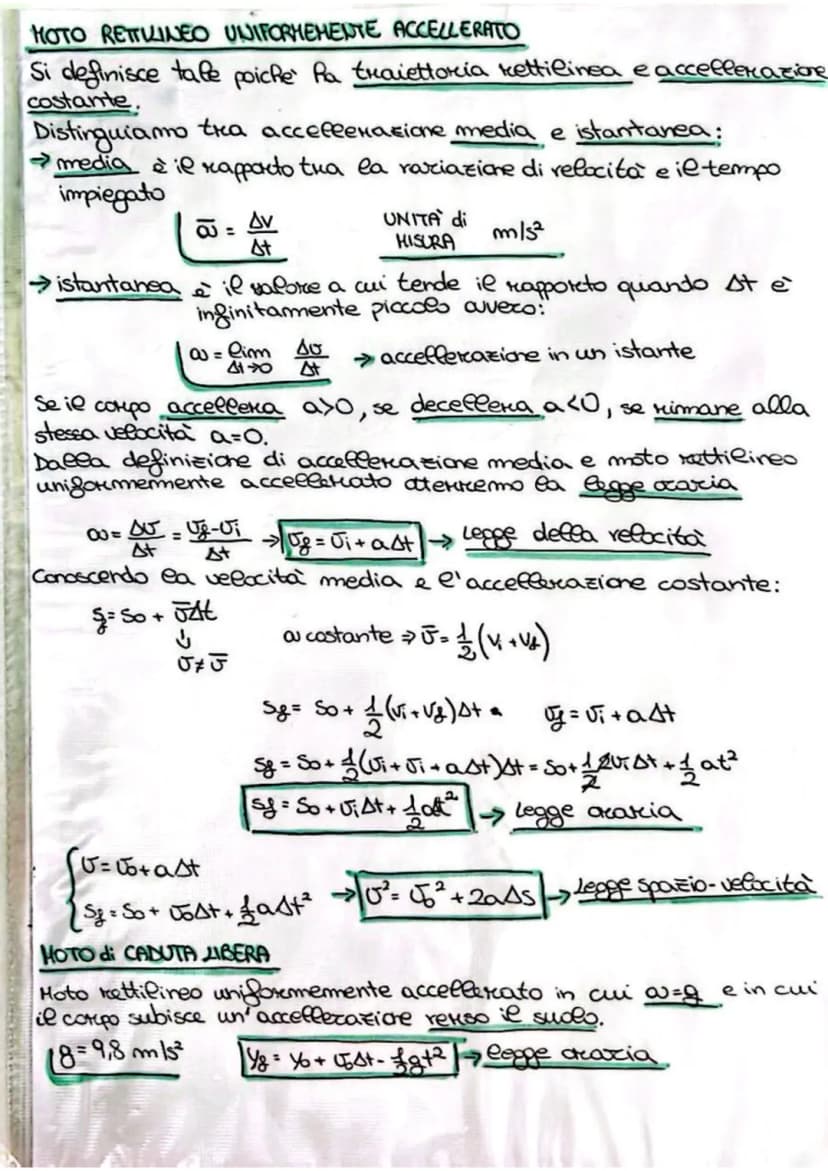 MOTO RETTILINEO UNIFORMEMENTE ACCELLERATO
Si definisce tale poiche' ha traiettoria rettilinea e accellerazione
costante.
Distinguiamo tra accellerazione media e istantanea:
→ media è il rapporto tra la variazione di velocità e il tempo
impiegato
ā = Δv/Δt UNITA' di MISURA m/s²
→ istantanea è il valore a cui tende il rapporto quando Δt è
infinitamente piccolo ovvero:
a = lim Δt→0 Δv/Δt → accellerazione in un istante
Se il corpo accellera a>0, se decellera a<0, se rimane alla
stessa velocità a=0.
Dalla definizione di accellerazione media e moto rettilineo
uniformemente accellerato otterremo la legge oraria
a = Δv/Δt = vf-vi/Δt → vf = vi + aΔt → Legge della velocità
Conoscendo la velocità media e l'accellerazione costante:
sf = so + v̄Δt
↓ a costante ⇒ v̄ = 1/2 (vi + vf)
v ≠ v̄
sf = so + 1/2 (vi + vf)Δt • vf = vi + aΔt
sf = so + 1/2 (vi + vi + aΔt)Δt = so + 1/2 2viΔt + 1/2 at²
sf = so + viΔt + 1/2 at² → Legge oraria
v = vo + aΔt
→ v² = vo² + 2aΔs → Legge spazio-velocità
sf = so + voΔt + 1/2 aΔt²
MOTO di CADUTA LIBERA
Moto rettilineo uniformemente accellerato in cui a=g e in cui
il corpo subisce un'accellerazione verso il suolo.
g = 9,8 m/s² yf = yo + voΔt - 1/2 gt² → legge oraria